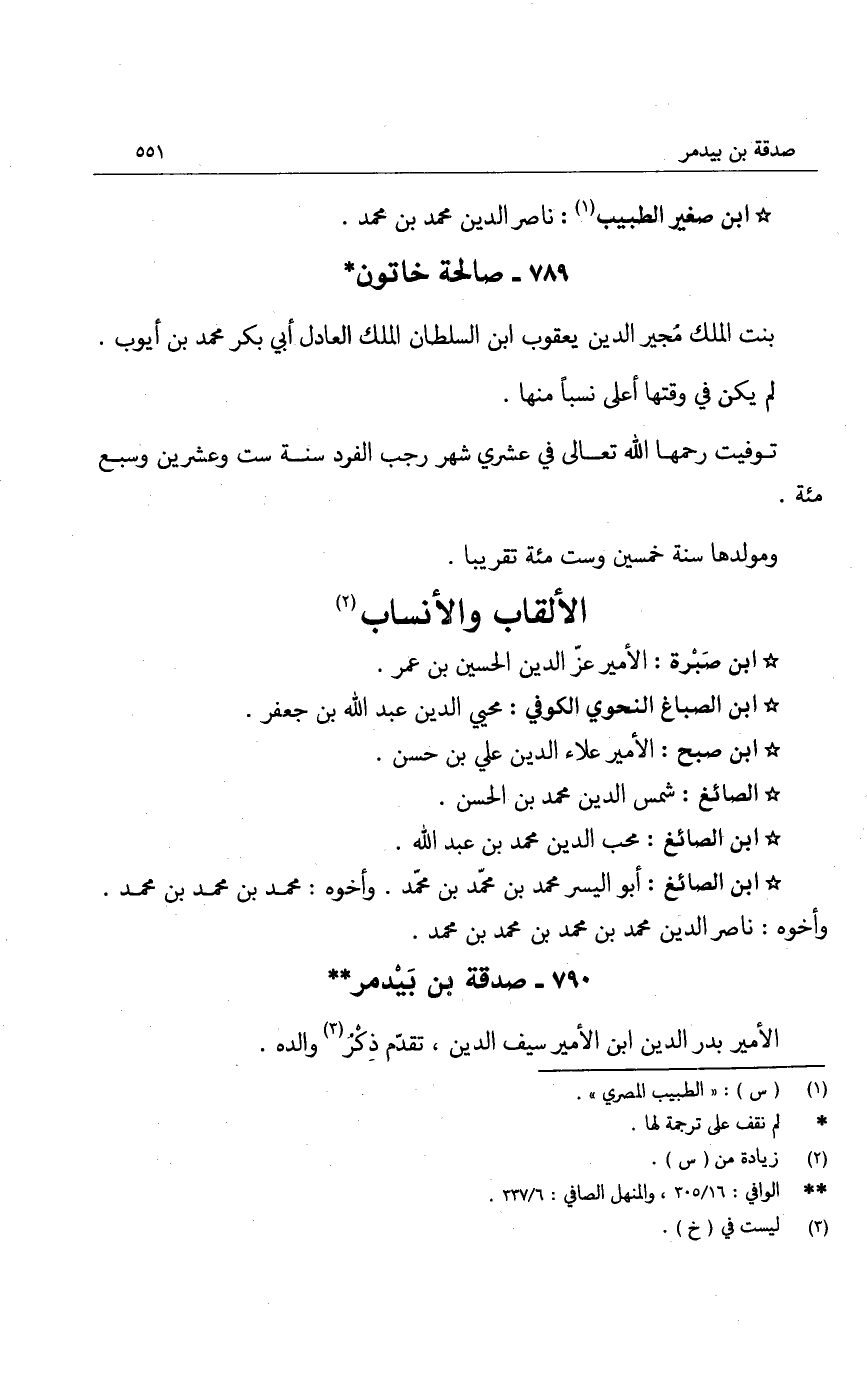 صدقة بن بيدمر ٥٥١
☆ ابن صغير الطبيب(١) : ناصر الدين محمد بن محمد .
٧٨٩ ـ صالحة خاتون*
بنت الملك مُجير الدين يعقوب ابن السلطان الملك العادل أبي بكر محمد بن أيوب .
لم يكن في وقتها أعلى نسباً منها .
تـوفيت رحمهـا الله تعـالى في عشري شهر رجب الفرد سنـة ست وعشرين وسبع
مئة .
ومولدها سنة خمسين وست مئة تقريبا .
الألقاب والأنساب(٢)
☆ ابن صَبْرة : الأمير عزّ الدين الحسين بن عمر .
☆ ابن الصباغ النحوي الكوفي : محيي الدين عبد الله بن جعفر .
☆ ابن صبح : الأمير علاء الدين علي بن حسن .
☆ الصائغ : شمس الدين محمد بن الحسن .
☆ ابن الصائغ : محب الدين محمد بن عبد الله .
☆ ابن الصائغ : أبو اليسر محمد بن محمّد بن محمّد . وأخوه : محمـد بن محمـد بن محمـد .
وأخوه : ناصر الدين محمد بن محمد بن محمد بن محمد .
٧٩٠ ـ صدقة بن بَيْدمر**
الأمير بدر الدين ابن الأمير سيف الدين ، تقدّم ذِكْرُ(٣) والده .
(١) ( س ) : « الطبيب المصري » .
* لم نقف على ترجمة لها .
(٢) زيادة من ( س ) .
** الوافي : ٣٠٥/١٦ ، والمنهل الصافي : ٣٣٧/٦ .
(٣) ليست في ( خ ) .